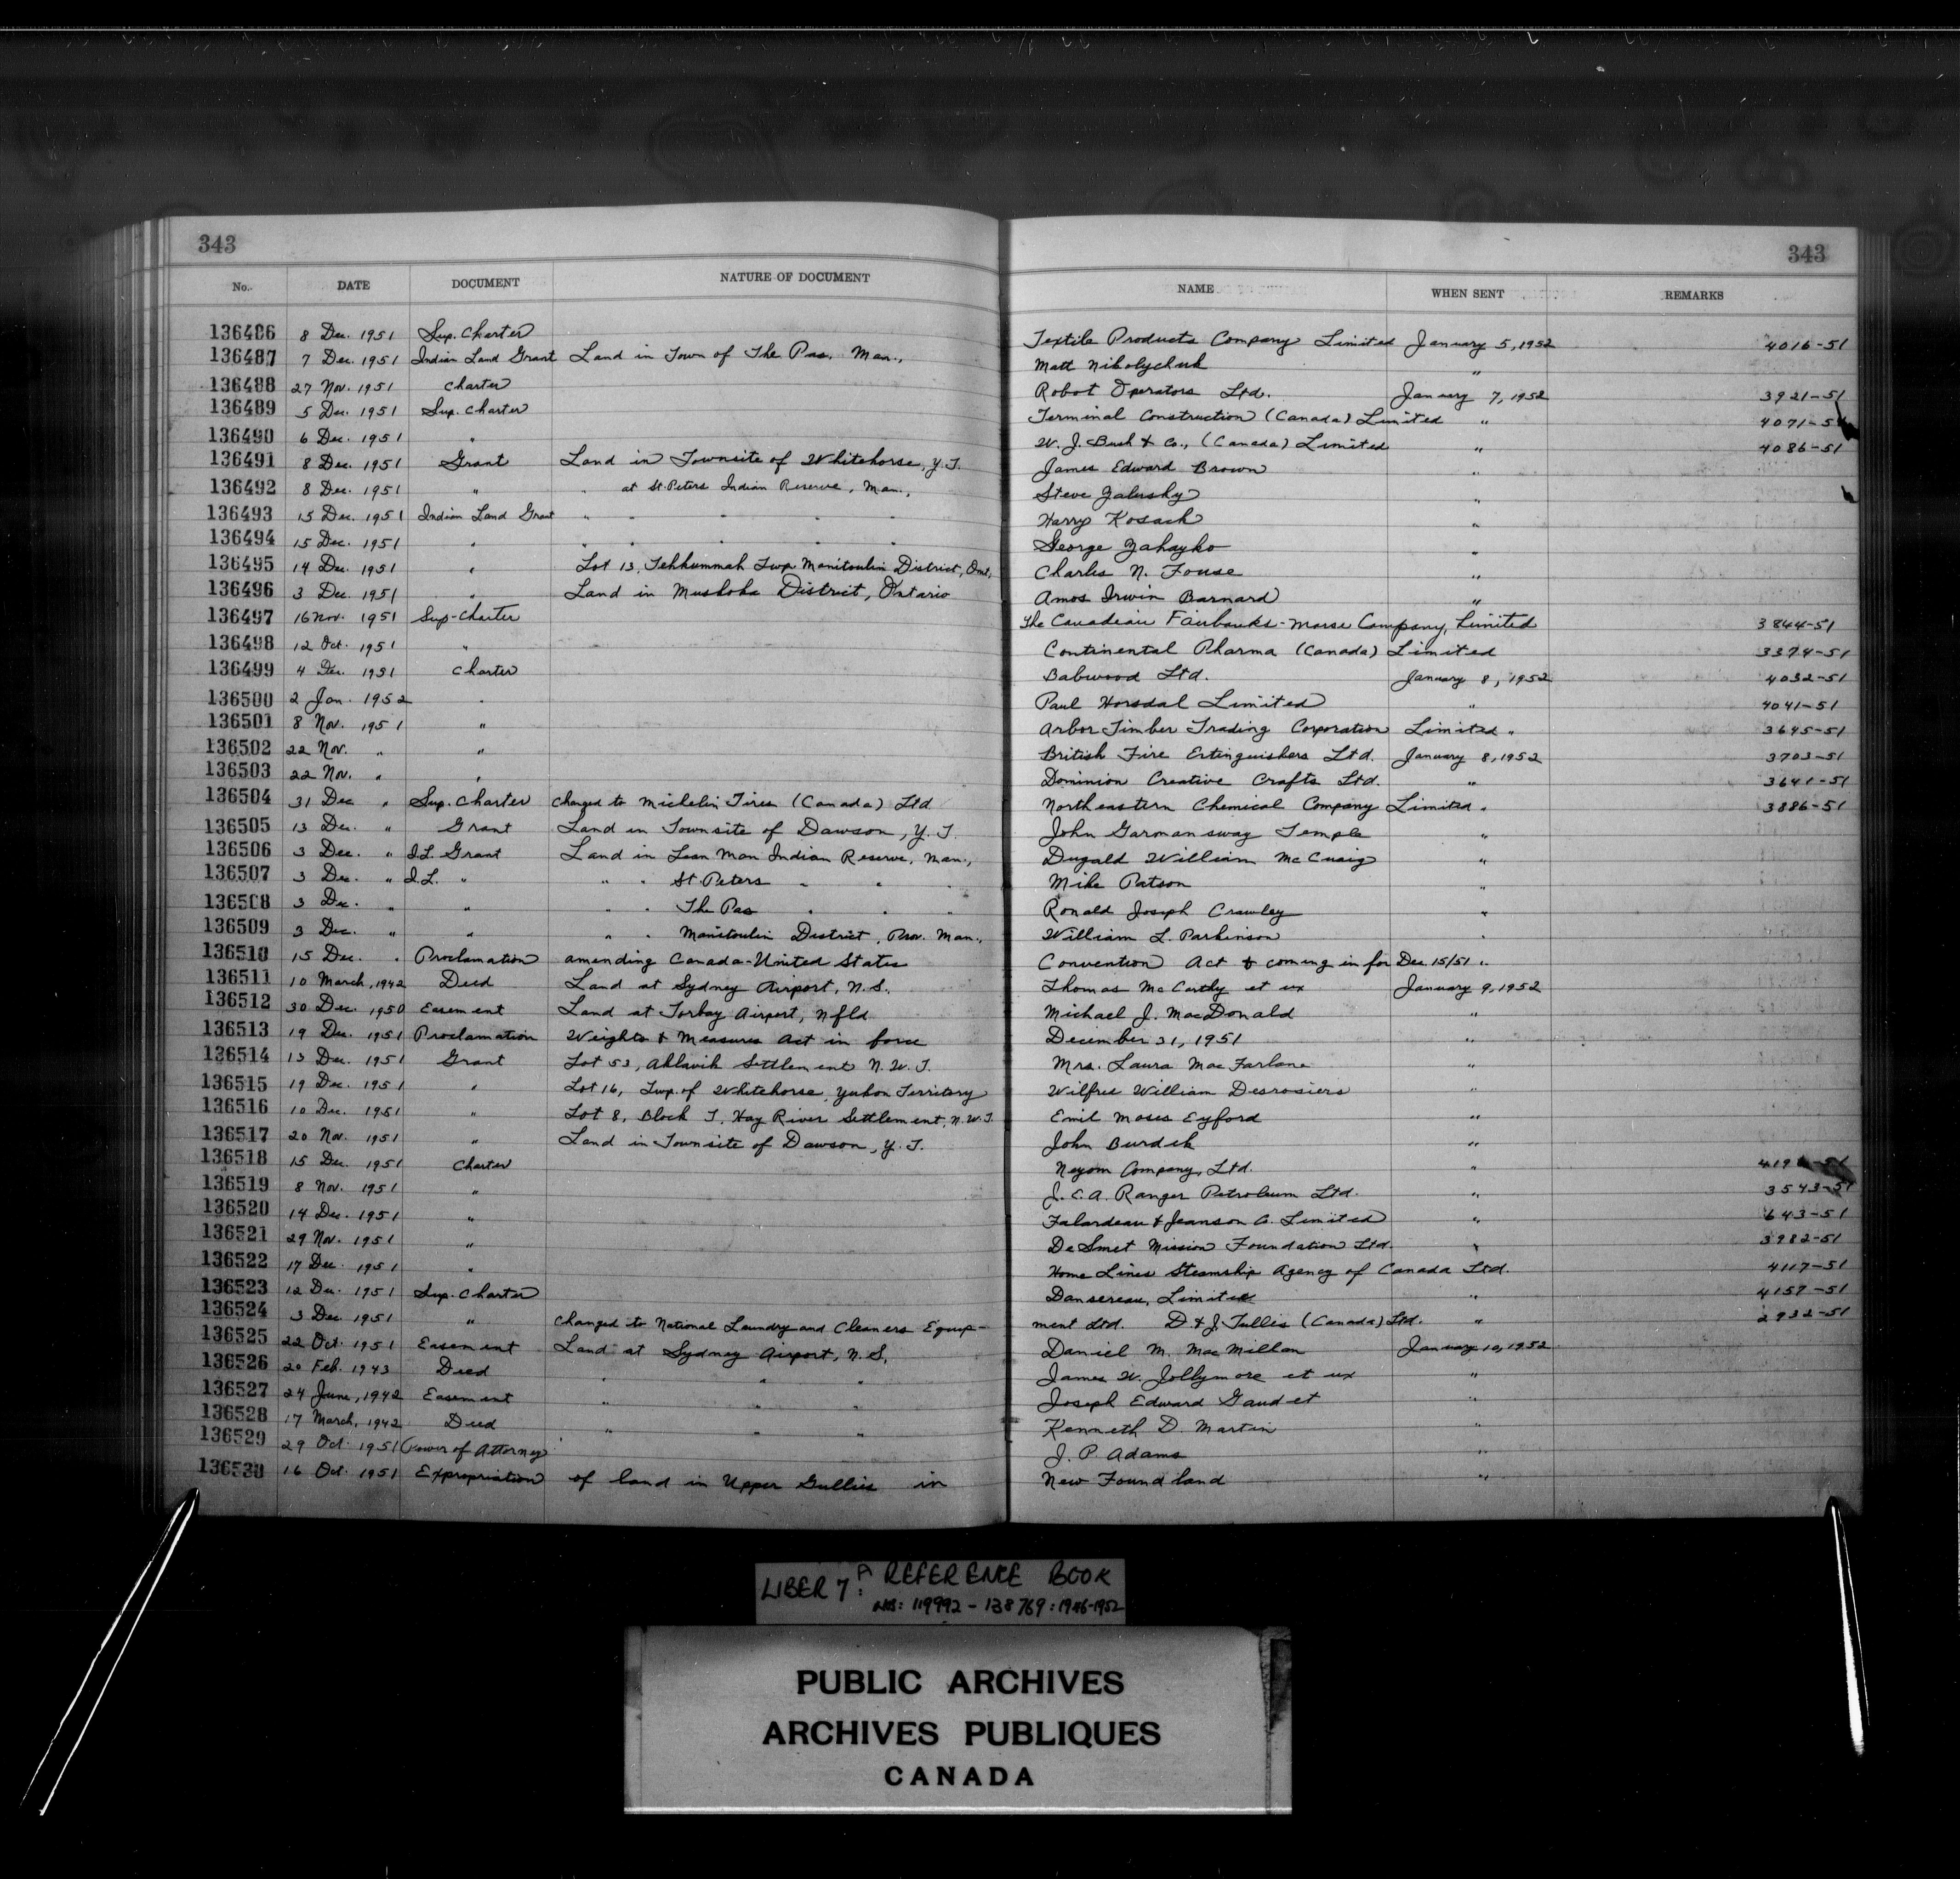 343 343
No. DATE DOCUMENT NATURE OF DOCUMENT NAME WHEN SENT REMARKS
136486 8 Dec. 1951 Sup. Charter Textile Products Company Limited January 5, 1952 4016-51
136487 7 Dec. 1951 Indian Land Grant Land in Town of The Pas, Man., Matt Nikolychuk "
136488 27 Nov. 1951 Charter Robot Operators Ltd. January 7, 1952 3921-51
136489 5 Dec. 1951 Sup. Charter Terminal Construction (Canada) Limited " 4071-51
136490 6 Dec. 1951 " W. J. Bush & Co., (Canada) Limited " 4086-51
136491 8 Dec. 1951 Grant Land in Townsite of Whitehorse, Y.T. James Edward Brown "
136492 8 Dec. 1951 " " at St. Peters Indian Reserve, Man., Steve Zalusky "
136493 15 Dec. 1951 Indian Land Grant " " " " " Harry Kosack "
136494 15 Dec. 1951 " " " " " " George Zahayko "
136495 14 Dec. 1951 " Lot 13, Tehkummah Twp. Manitoulin District, Ont., Charles N. Fouse "
136496 3 Dec. 1951 " Land in Muskoka District, Ontario Amos Irwin Barnard "
136497 16 Nov. 1951 Sup-Charter The Canadian Fairbanks-Morse Company, Limited 3844-51
136498 12 Oct. 1951 " Continental Pharma (Canada) Limited 3374-51
136499 4 Dec. 1951 Charter Babwood Ltd. January 8, 1952 4032-51
136500 2 Jan. 1952 " Paul Horsdal Limited " 4041-51
136501 8 Nov. 1951 " Arbor Timber Trading Corporation Limited " 3645-51
136502 22 Nov. " " British Fire Extinguishers Ltd. January 8, 1952 3703-51
136503 22 Nov. " " Dominion Creative Crafts Ltd. " 3641-51
136504 31 Dec " Sup. Charter Changed to Michelin Tires (Canada) Ltd Northeastern Chemical Company Limited " 3886-51
136505 13 Dec. " Grant Land in Townsite of Dawson, Y.T. John Garmansway Temple "
136506 3 Dec. " I.L. Grant Land in Lean Man Indian Reserve, Man., Dugald William McCuaig "
136507 3 Dec. " I.L. " " " St. Peters " " " Mike Patson "
136508 3 Dec. " " " " The Pas " " " Ronald Joseph Crawley "
136509 3 Dec. " " " " Manitoulin District, Prov. Man., William L. Parkinson "
136510 15 Dec. " Proclamation amending Canada-United States Convention Act & coming in for Dec. 15/51 "
136511 10 March, 1942 Deed Land at Sydney Airport, N.S. Thomas McCarthy et ux January 9, 1952
136512 30 Dec. 1950 Easement Land at Torbay Airport, Nfld Michael J. MacDonald "
136513 19 Dec. 1951 Proclamation Weights & Measures Act in force December 31, 1951 "
136514 13 Dec. 1951 Grant Lot 53, Aklavik Settlement N.W.T. Mrs. Laura MacFarlane "
136515 19 Dec. 1951 " Lot 16, Twp. of Whitehorse, Yukon Territory Wilfred William Desrosiers "
136516 10 Dec. 1951 " Lot 8, Block T, Hay River Settlement, N.W.T. Emil Moses Eyford "
136517 20 Nov. 1951 " Land in Townsite of Dawson, Y.T. John Burdek "
136518 15 Dec. 1951 Charter Neyom Company, Ltd. "
136519 8 Nov. 1951 " J.C.A. Ranger Petroleum Ltd. " 3543-51
136520 14 Dec. 1951 " Falardeau & Jeanson Co. Limited " 643-51
136521 29 Nov. 1951 " DeSmet Mission Foundation Ltd. " 3982-51
136522 17 Dec. 1951 " Home Lines Steamship Agency of Canada Ltd. 4117-51
136523 12 Dec. 1951 Sup. Charter Dansereau, Limited " 4157-51
136524 3 Dec 1951 " Changed to National Laundry and Cleaners Equip- ment Ltd. D & J. Tullis (Canada) Ltd. " 2932-51
136525 22 Oct. 1951 Easement Land at Sydney Airport, N.S. Daniel M. MacMillan January 10, 1952
136526 20 Feb. 1943 Deed " " " James W. Jollymore et ux "
136527 24 June, 1942 Easement " " " Joseph Edward Gaudet "
136528 17 March, 1942 Deed " " " Kenneth D. Martin "
136529 29 Oct. 1951 Power of Attorney J. P. Adams "
136530 16 Oct. 1951 Expropriation of land in Upper Gullies in New Foundland "
LIBER 7: A REFERENCE BOOK
NOS: 119992 - 138769: 1946-1952
PUBLIC ARCHIVES
ARCHIVES PUBLIQUES
CANADA